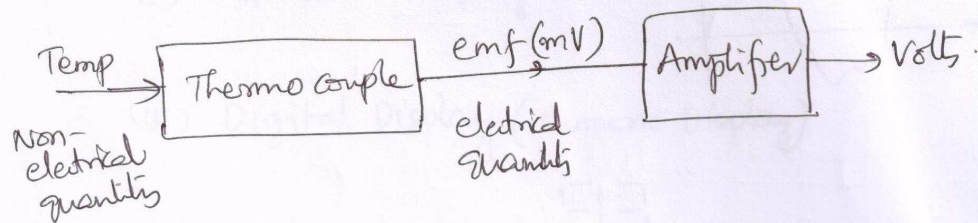 Temp
Non-
eletrical
quantitis
Thermo couple
emf (mV)
eletrical
quantitis
Amplifier
Volts.